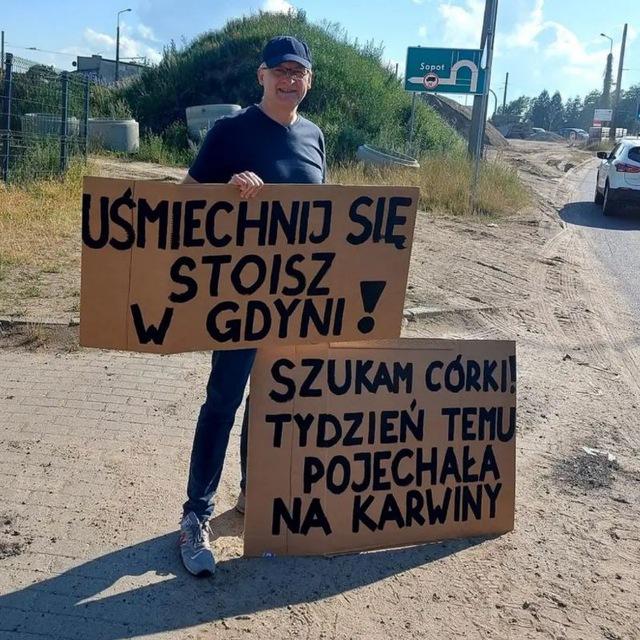 Sopot
UŚMIECHNIJ SIĘ
STOISZ
W GDYNI!
SZUKAM CÓRKI!
TYDZIEŃ TEMU
POJECHAŁA
NA KARWINY